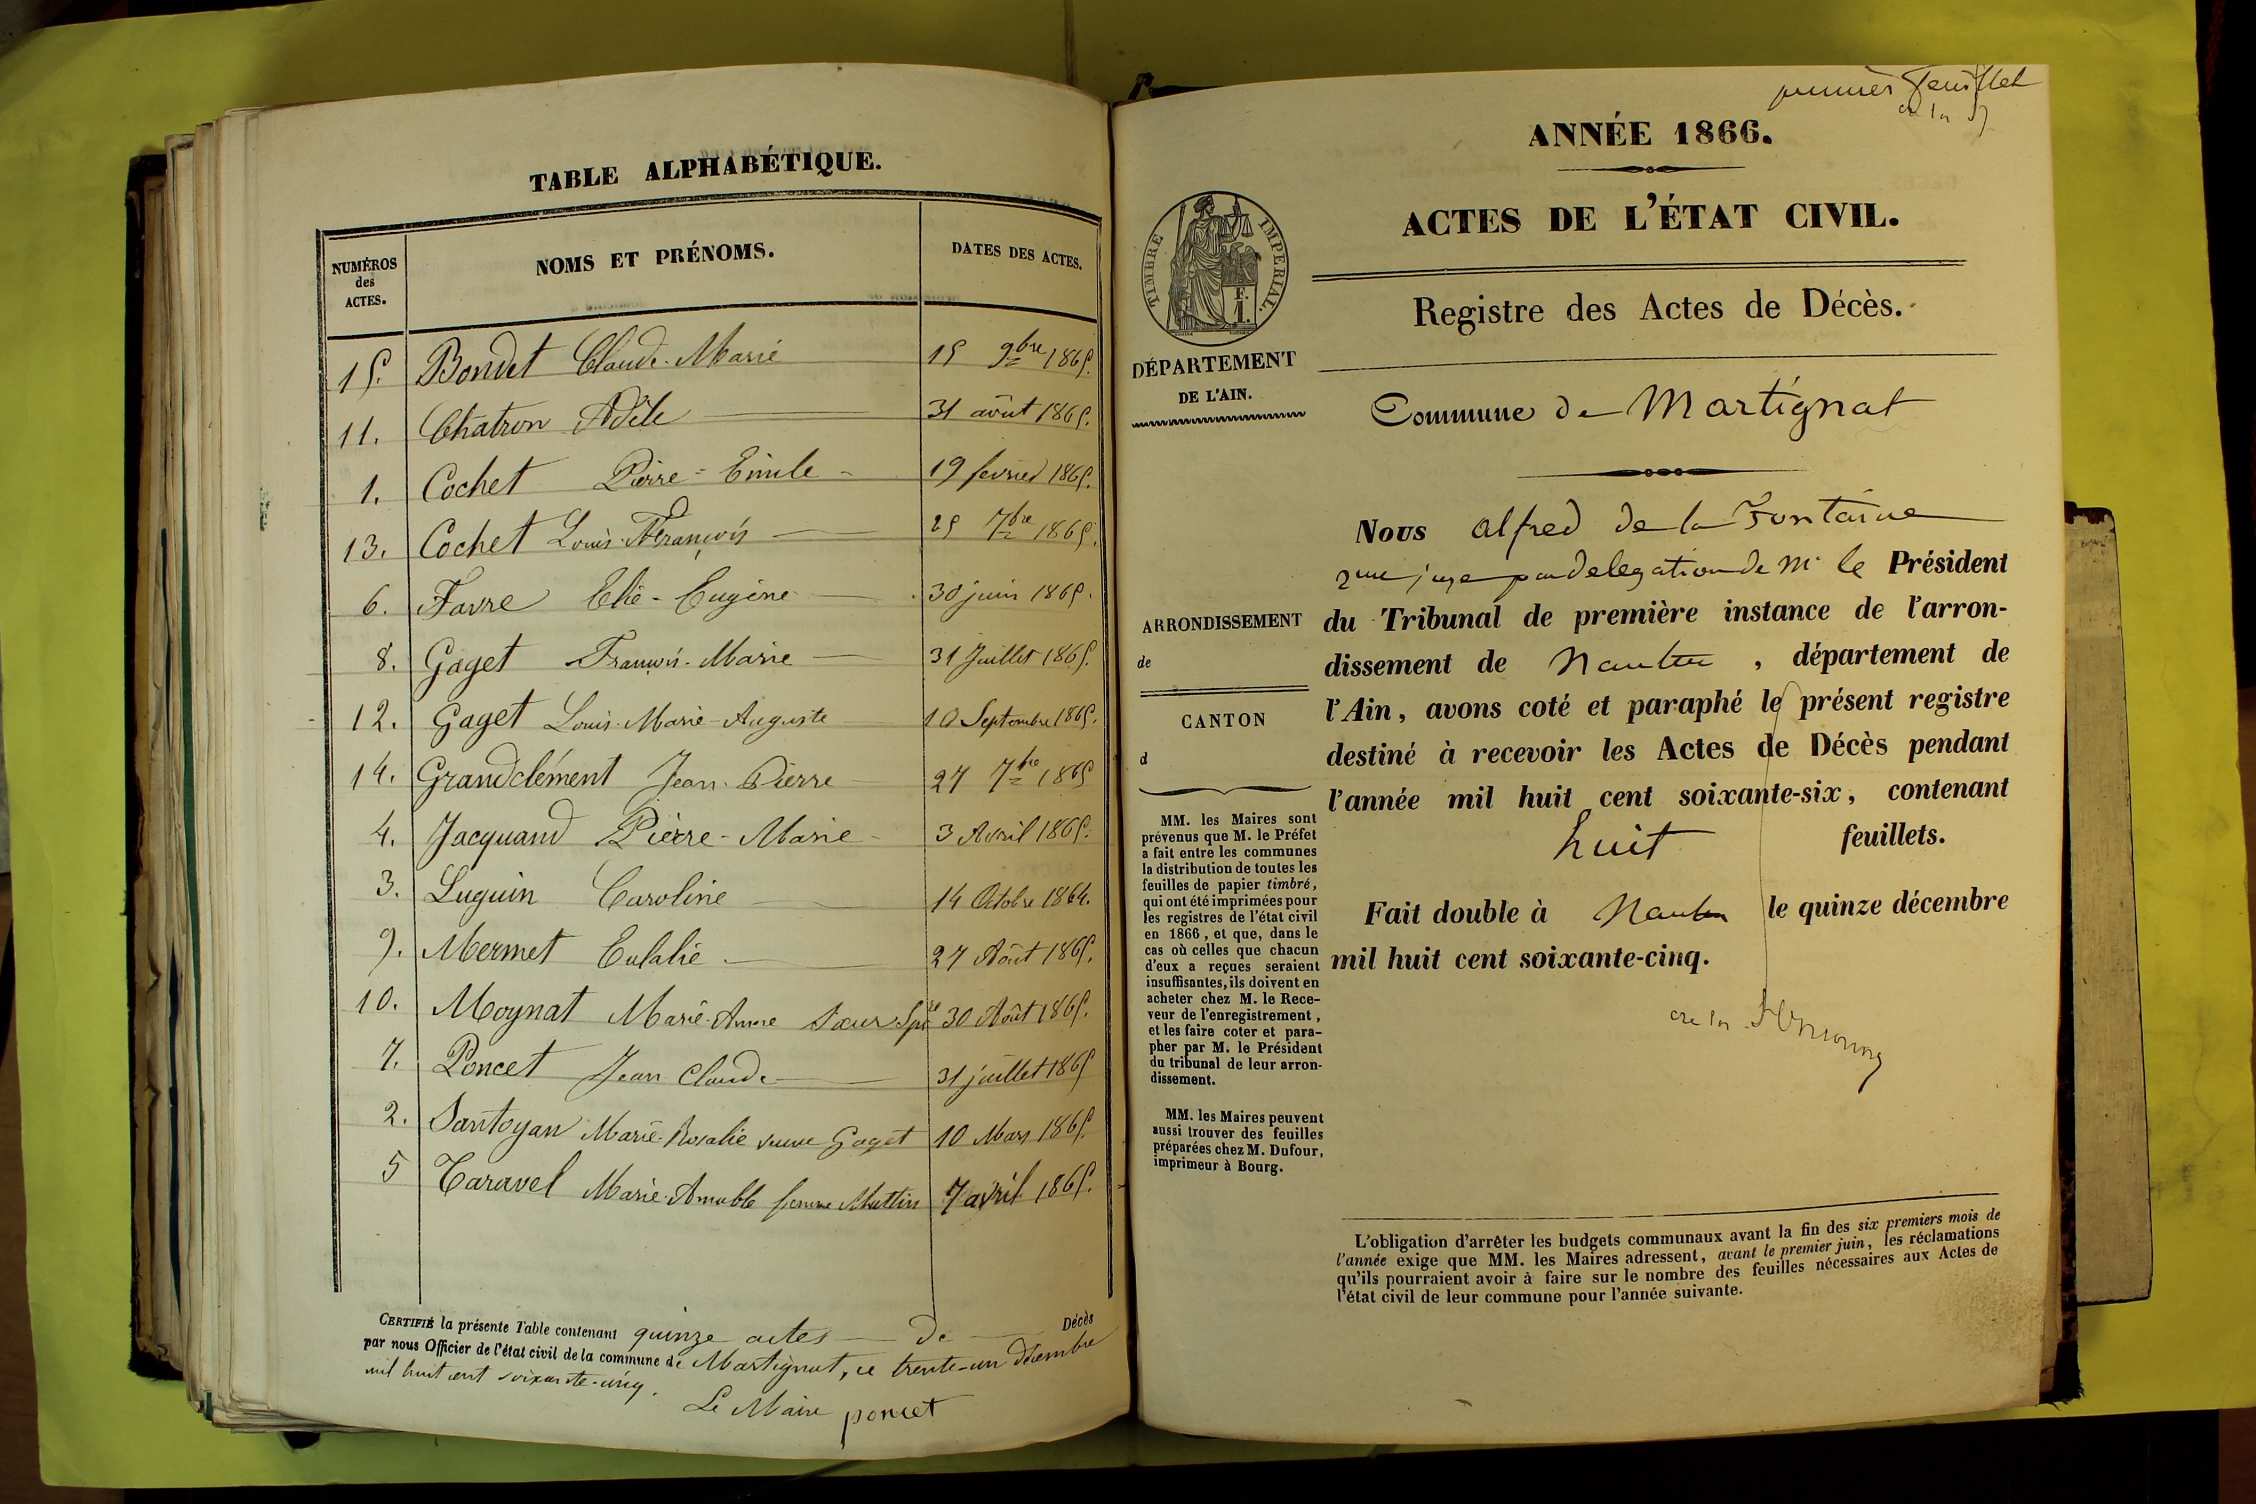 TABLE ALPHABÉTIQUE.
NUMÉROS des ACTES.
NOMS ET PRÉNOMS.
DATES DES ACTES.
15. Bondet Claude-Marie 15 9bre 1865.
11. Chatron Adèle 31 août 1865.
1. Cochet Pierre-Emile 19 février 1865.
13. Cochet Louis-François 25 7bre 1865.
6. Favre Elie-Eugène 30 juin 1865.
8. Gaget François-Marie 31 Juillet 1865.
12. Gaget Louis-Marie-Auguste 10 Septembre 1865.
14. Grandclément Jean-Pierre 27 7bre 1865
4. Jacquand Pierre-Marie 3 Avril 1865.
3. Luguin Caroline 14 Octobre 1864.
9. Mermet Eulalie 27 Août 1865.
10. Moynat Marie-Anne Sœur 30 Août 1865.
7. Poncet Jean Claude 31 juillet 1865
2. Santoyan Marie-Rosalie veuve Gaget 10 Mars 1865.
5 Taravel Marie-Amable femme 7 avril 1865.
CERTIFIÉ la présente Table contenant quinze actes de Décès
par nous Officier de l'état civil de la commune de Martignat, ce trente-un décembre
mil huit cent soixante-cinq.
Le Maire poncet
premier feuillet
ANNÉE 1866.
ACTES DE L'ÉTAT CIVIL.
TIMBRE IMPÉRIAL.
F. 1.
Registre des Actes de Décès.
DÉPARTEMENT
DE L'AIN.
Commune de Martignat
Nous alfred de la Fontaine
juge par delegation de Mr le Président
du Tribunal de première instance de l'arron-
dissement de Nantua, département de
l'Ain, avons coté et paraphé le présent registre
destiné à recevoir les Actes de Décès pendant
l'année mil huit cent soixante-six, contenant
huit feuillets.
Fait double à Nantua le quinze décembre
mil huit cent soixante-cinq.
ARRONDISSEMENT
de
CANTON
d
MM. les Maires sont
prévenus que M. le Préfet
a fait entre les communes
la distribution de toutes les
feuilles de papier timbré,
qui ont été imprimées pour
les registres de l'état civil
en 1866, et que, dans le
cas où celles que chacun
d'eux a reçues seraient
insuffisantes, ils doivent en
acheter chez M. le Rece-
veur de l'enregistrement,
et les faire coter et para-
pher par M. le Président
du tribunal de leur arron-
dissement.
MM. les Maires peuvent
aussi trouver des feuilles
préparées chez M. Dufour,
imprimeur à Bourg.
L'obligation d'arrêter les budgets communaux avant la fin des six premiers mois de
l'année exige que MM. les Maires adressent, avant le premier juin, les réclamations
qu'ils pourraient avoir à faire sur le nombre des feuilles nécessaires aux Actes de
l'état civil de leur commune pour l'année suivante.